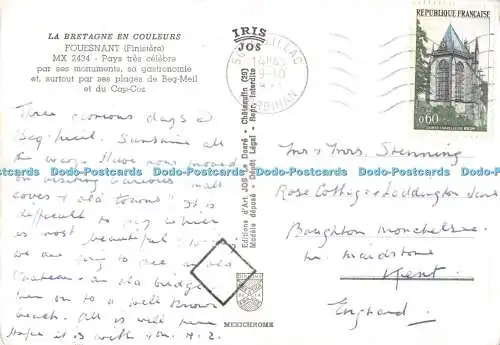 LA BRETAGNE EN COULEURS
FOUESNANT (Finistère)
MX 2434 - Pays très célèbre
par ses monuments, sa gastronomie
et, surtout par ses plages de Beg-Meil
et du Cap-Coz
IRIS
JOS
Editions d'Art JOS Le Doaré - Châteaulin (29)
Modèle déposé - Dépôt Légal - Repro. interdite
MEXICHROME
REPUBLIQUE FRANÇAISE
0,60
MORBIHAN
Three glorious days at
Beg-Meil. Sunshine all
the way. Have now moved
on visiting various small
coves & old towns. It is
difficult to say which
is most beautiful. Today
we are going to see an old
Chateau - an via bridge
on to a well known
beach. All is well here
hope it is with you.
Mr & Mrs. Stenning
Rose Cottage Loddington Lane
Boughton Monchelsea
Nr. Maidstone
Kent.
England
Dodo-Postcards Dodo-Postcards Dodo-Postcards Dodo-Postcards